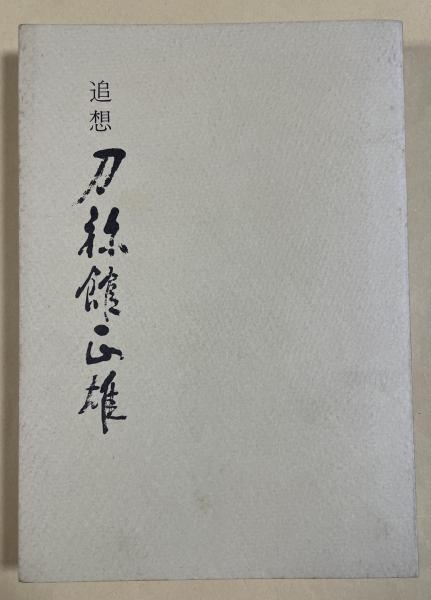 追想
刀祢館正雄